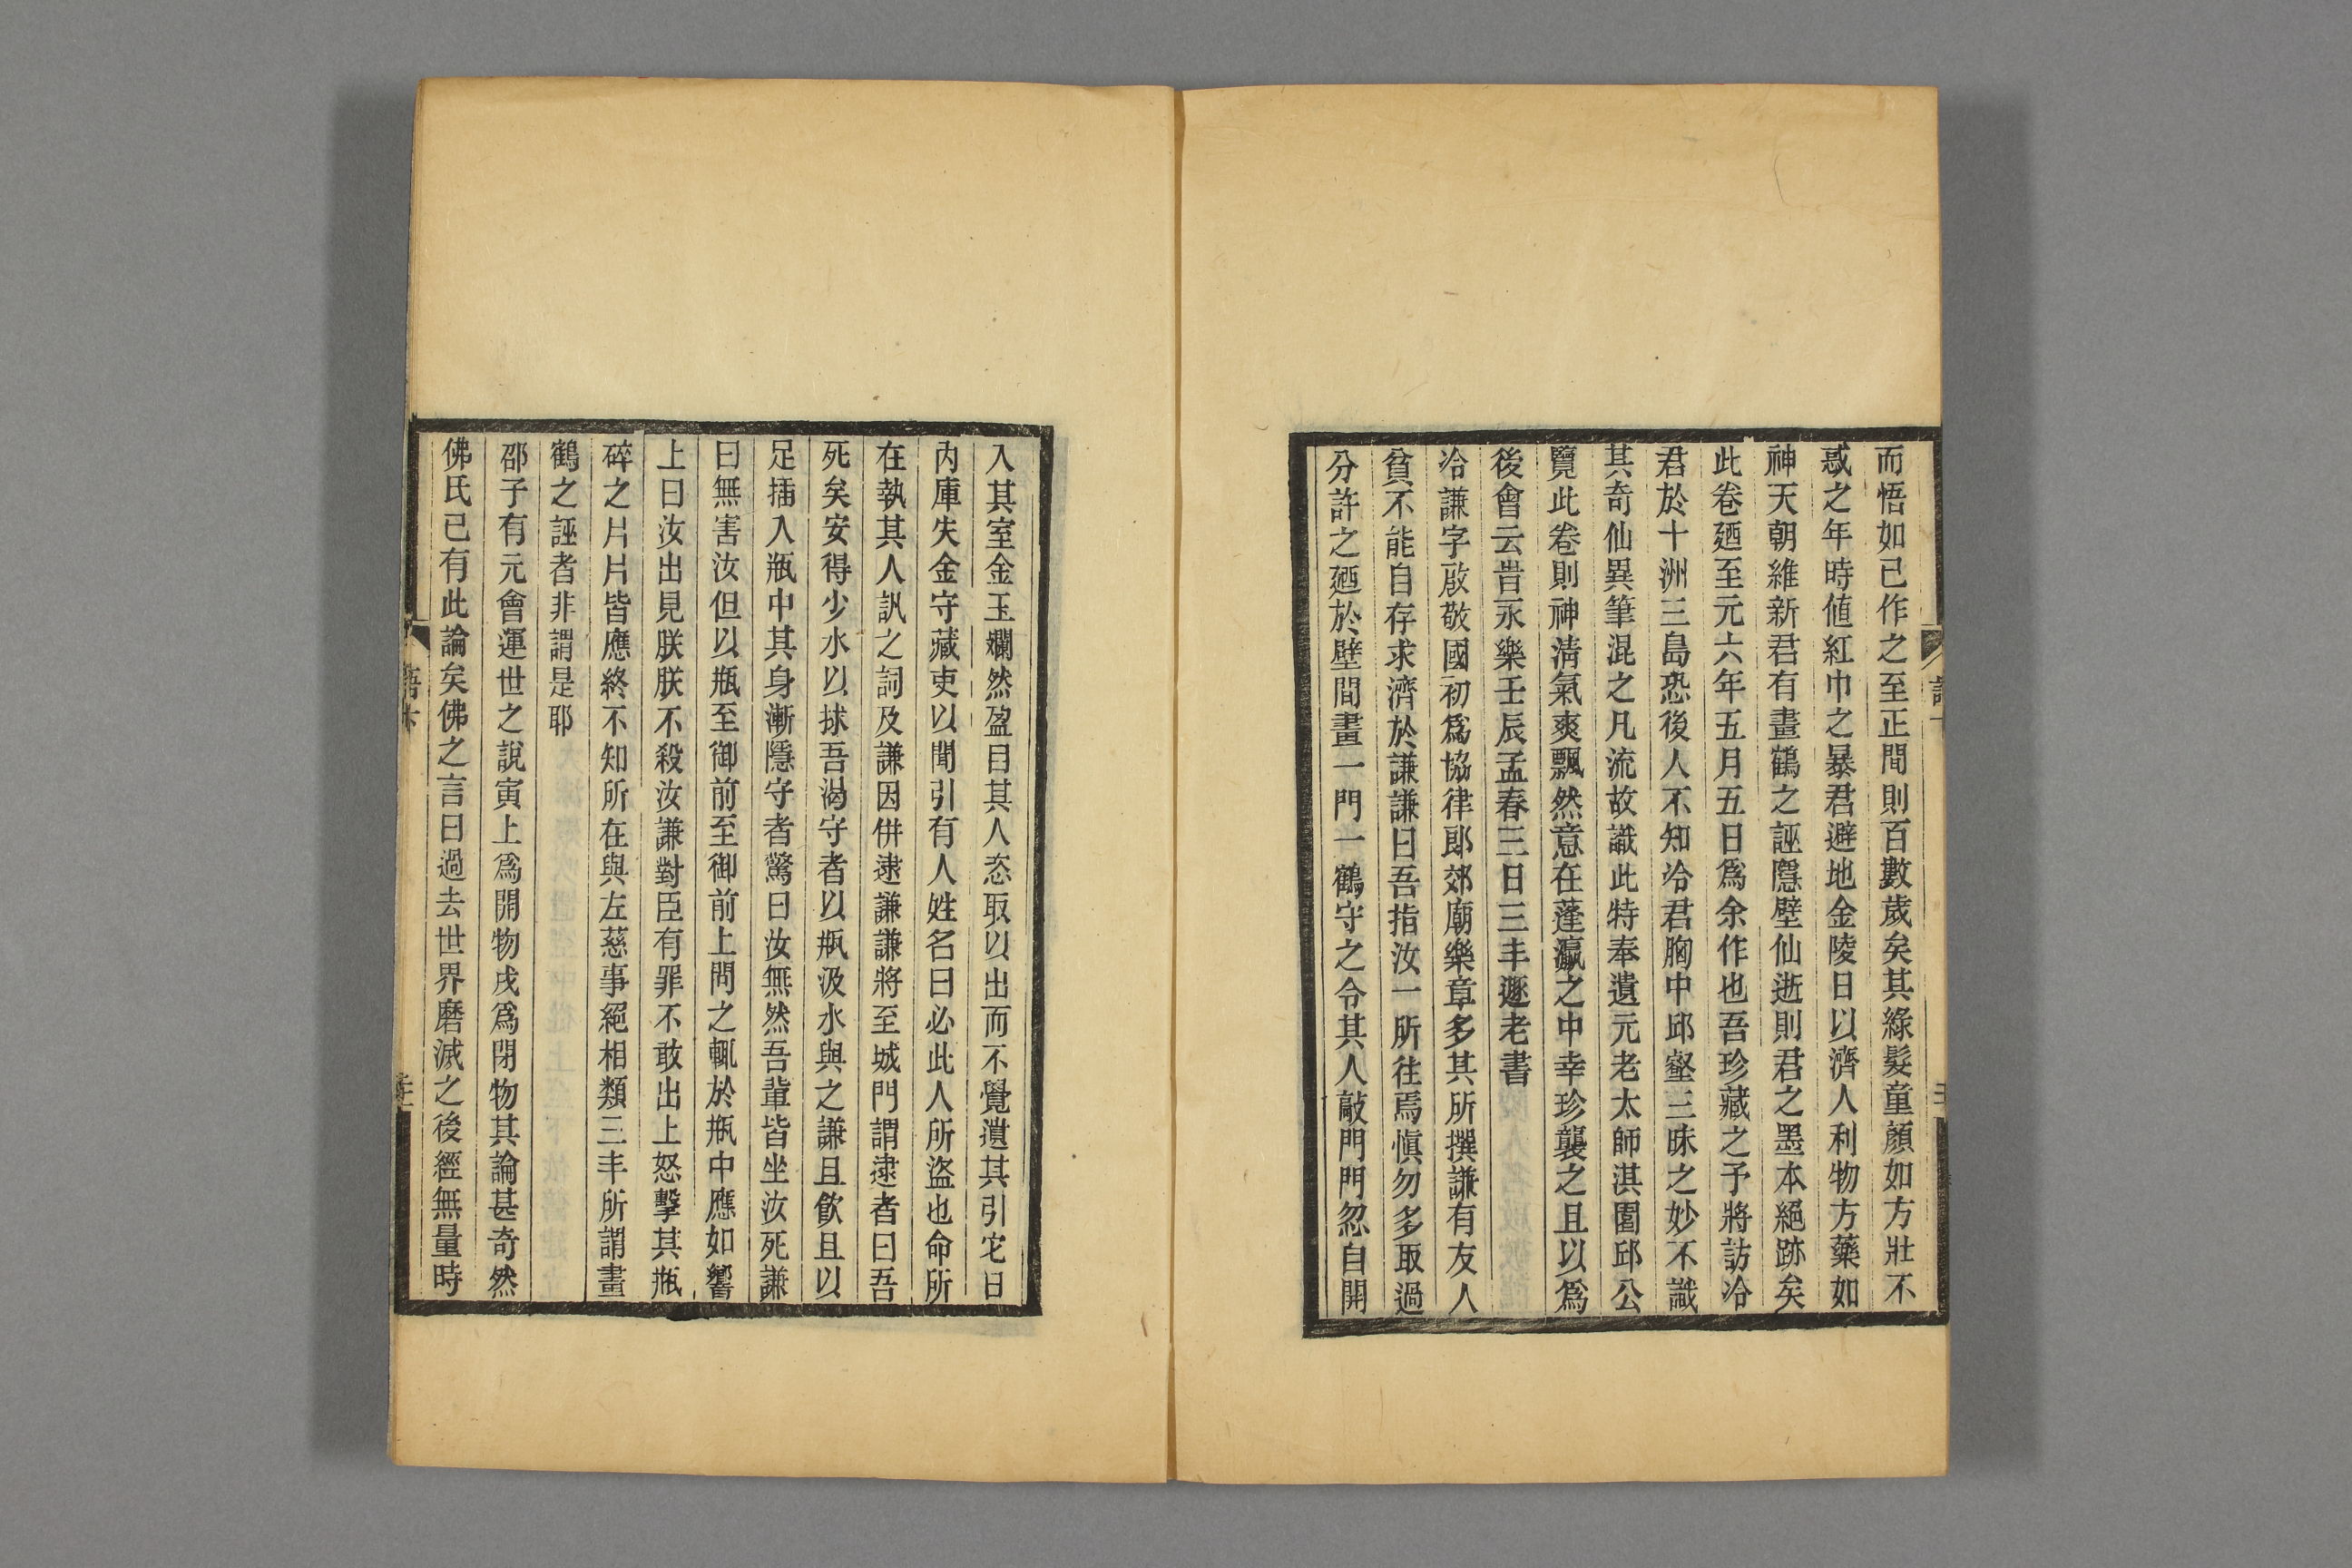 而悟如己作之至正間則百數歲矣其綠髮童顏如方壯不
惑之年時値紅巾之暴君避地金陵日以濟人利物方藥如
神天朝維新君有畫鶴之誣隱壁仙逝則君之墨本絕跡矣
此卷廼至元六年五月五日爲余作也吾珍藏之予將訪冷
君於十洲三島恐後人不知冷君胸中邱壑三昧之妙不識
其奇仙異筆混之凡流故識此特奉遺元老太師淇園邱公
覽此卷則神淸氣爽飄然意在蓬瀛之中幸珍襲之且以爲
後會云昔永樂壬辰孟春三日三丰遯老書
冷謙字啟敬國初爲協律郎郊廟樂章多其所撰謙有友人
貧不能自存求濟於謙謙曰吾指汝一所往焉愼勿多取過
分許之廼於壁間畫一門一鶴守之令其人敲門門忽自開
入其室金玉爛然盈目其人恣取以出而不覺遺其引宅日
內庫失金守藏吏以聞引有人姓名曰必此人所盜也命所
在執其人訊之詞及謙因併逮謙謙將至城門謂逮者曰吾
死矣安得少水以捄吾渴守者以瓶汲水與之謙且飮且以
足揷入瓶中其身漸隱守者驚曰汝無然吾輩皆坐汝死謙
曰無害汝但以瓶至御前至御前上問之輒於瓶中應如響
上曰汝出見朕朕不殺汝謙對臣有罪不敢出上怒擊其瓶
碎之片片皆應終不知所在與左慈事絕相類三丰所謂畫
鶴之誣者非謂是耶
邵子有元會運世之說寅上爲開物戌爲閉物其論甚奇然
佛氏已有此論矣佛之言曰過去世界磨滅之後經無量時